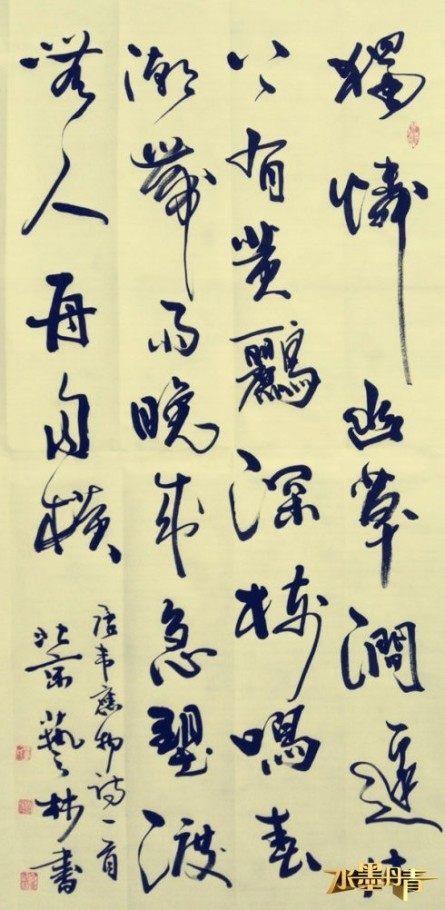 獨憐幽草澗邊生
上有黃鸝深樹鳴春
潮帶雨晚來急墅渡
無人舟自橫
唐韋應物詩一首
北京藝林書
水墨丹青